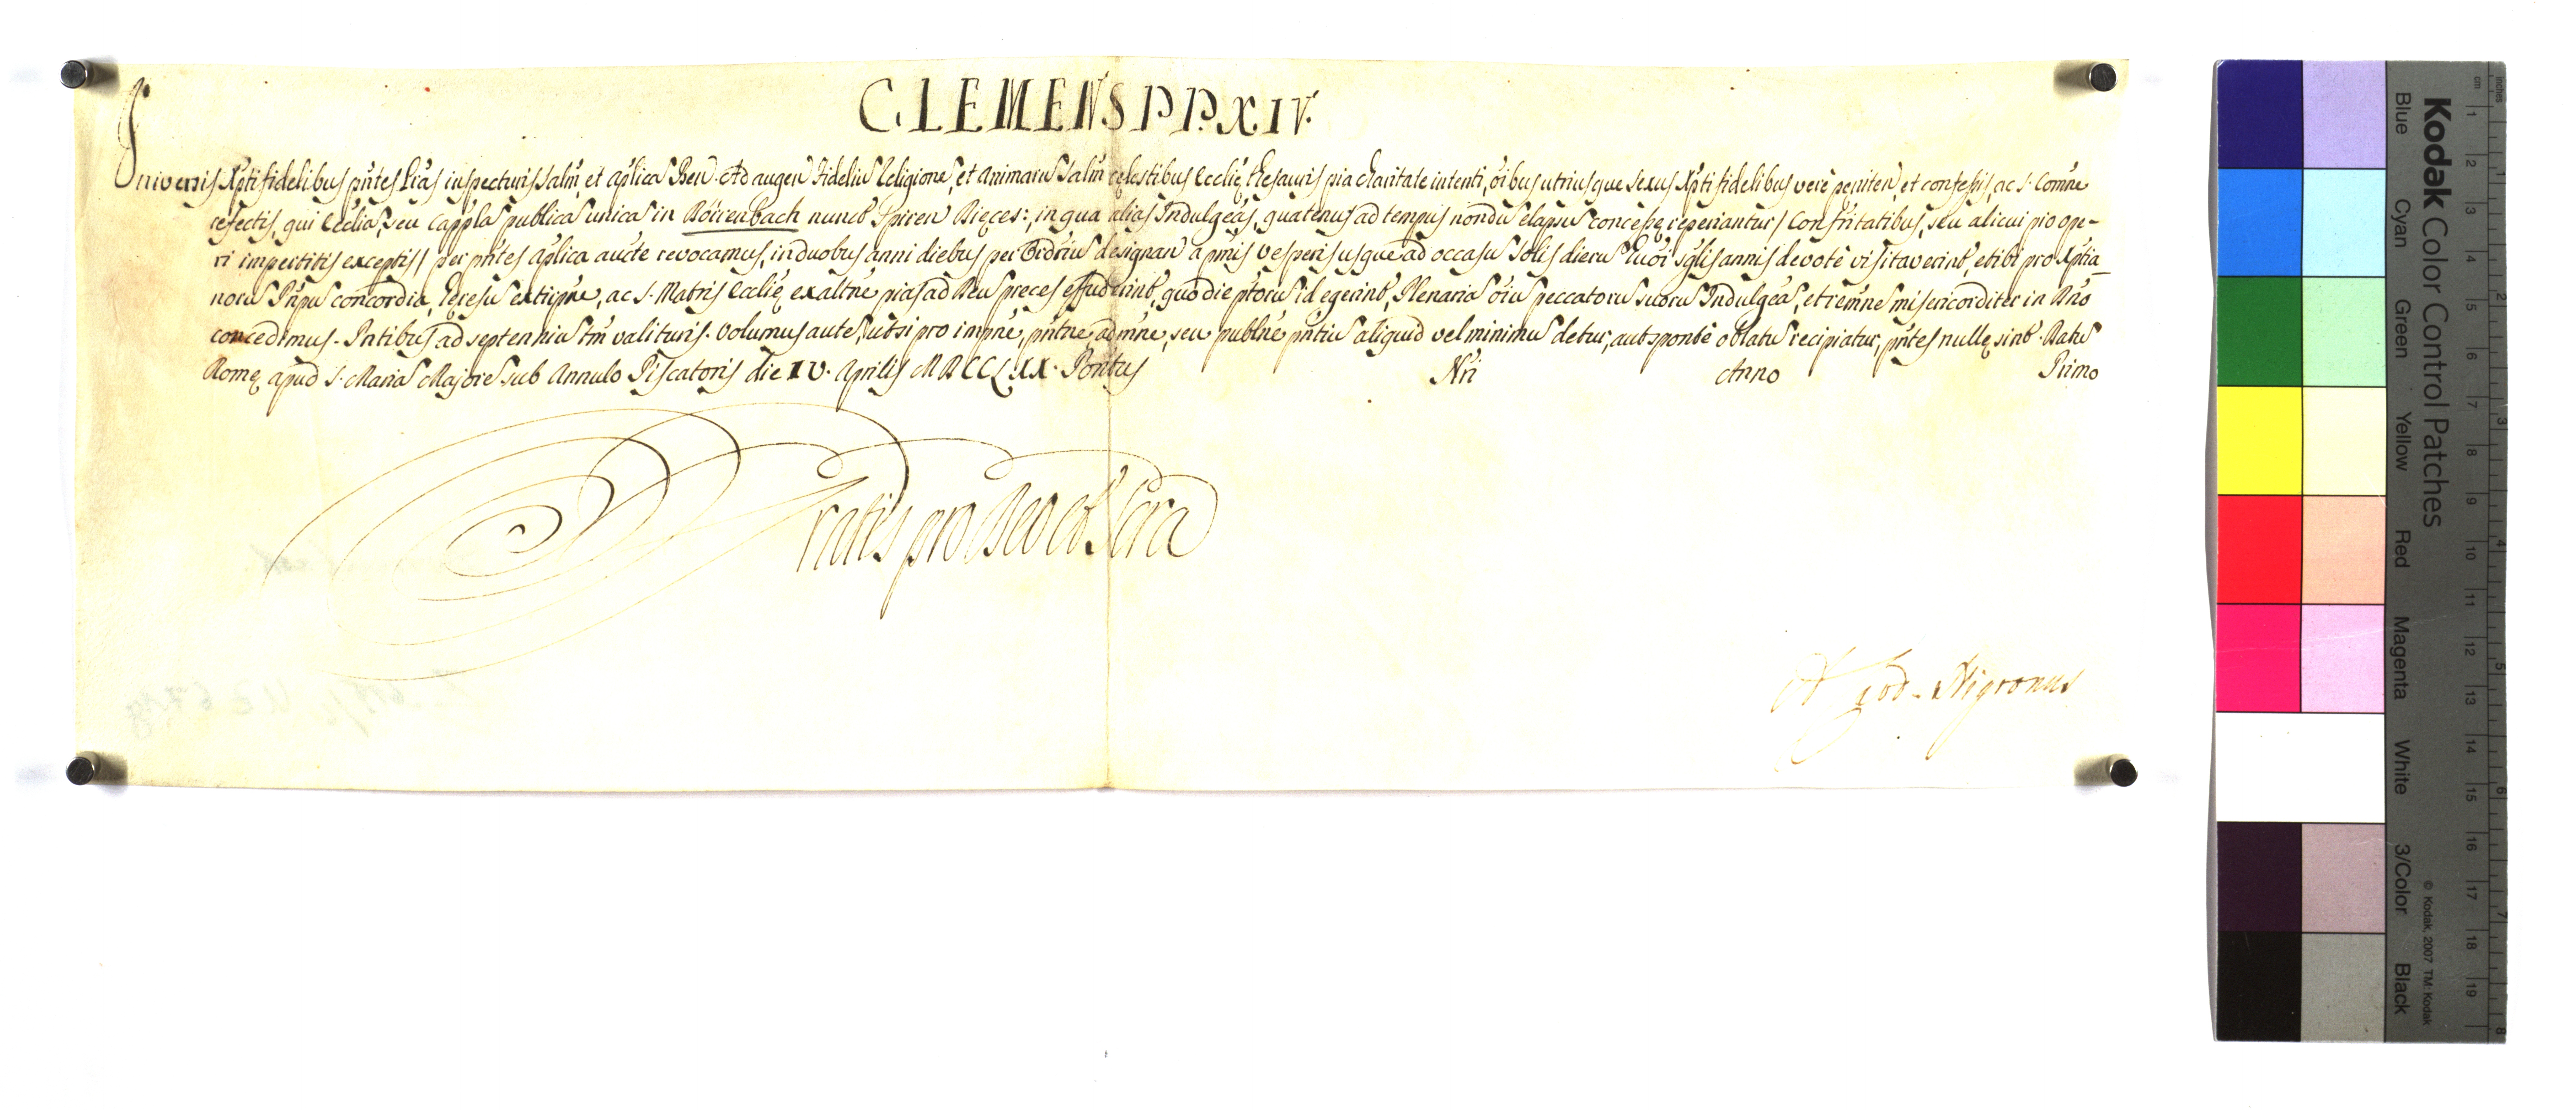 CLEMENS PP. XIV.
Universis Xpti fidelibus pntes Lras inspecturis Salm et aplica Ben. Ad augen Fideliu Religione, et Animaru Salm celestibus Ecclie thesauris pia charitate intenti, oibus utriusque sexus Xpti fidelibus vere peniten, et confessis, ac S. Comne
refectis, qui Ecclia, seu Cappla publica unica in Börrenbach nunct Spiren Dieces:, in qua alias Indulgeas, quatenus ad tempus nondu elapsu concesse reperiantur / Confritatibus, seu alicui pio ope-
ri impertitis exceptis / per pntes aplica aucte revocamus, in duobus anni diebus per Ordriu designan a pmis vesperis usque ad occasu Solis dieru huoi sglis annis devote visitaverint, et ibi pro Xptia-
noru Pnpu concordia, heresu extirpne, ac S. Matris Ecclie exaltne pias ad Deu preces effuderint, quo die ptoru id egerint, Plenaria oiu peccatoru suoru Indulgea, et remne misericorditer in Dno
concedimus. Pntibus ad septenniu tm valituris. Volumus aute, ut si pro impne, pntne, admne, seu publne pntiu aliquid vel minimu detur, aut sponte oblatu recipiatur, pntes nulle sint. Datu
Rome apud S. Maria Majore sub Annulo Piscatoris die IV. Aprilis MDCCLXX. Pontus Nri Anno Primo
Gratis pro Deo et Scra
Nigronus
Kodak Color Control Patches
Blue Cyan Green Yellow Red Magenta White 3/Color Black
© Kodak, 2007 TM: Kodak
cm 1 2 3 4 5 6 7 8 9 10 11 12 13 14 15 16 17 18 19
inches 1 2 3 4 5 6 7 8